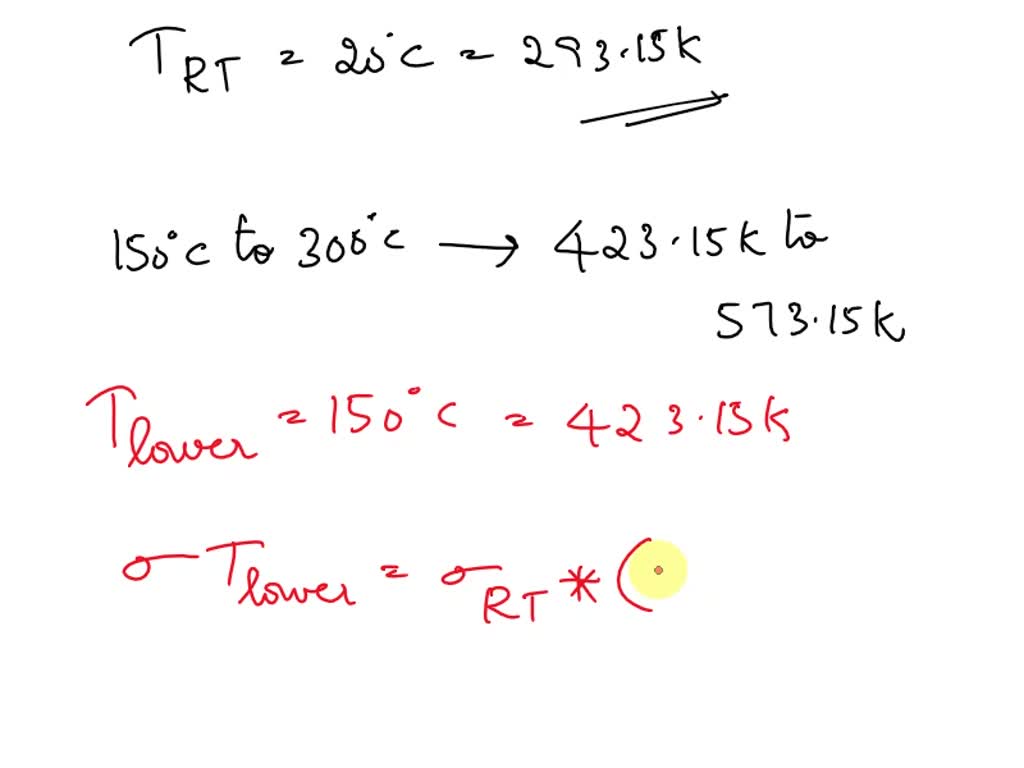 T_RT = 20°C = 293.15K
150°C to 300°C → 423.15K to
573.15K
T_lower = 150°C = 423.15K
σ T_lower = σ_RT * (